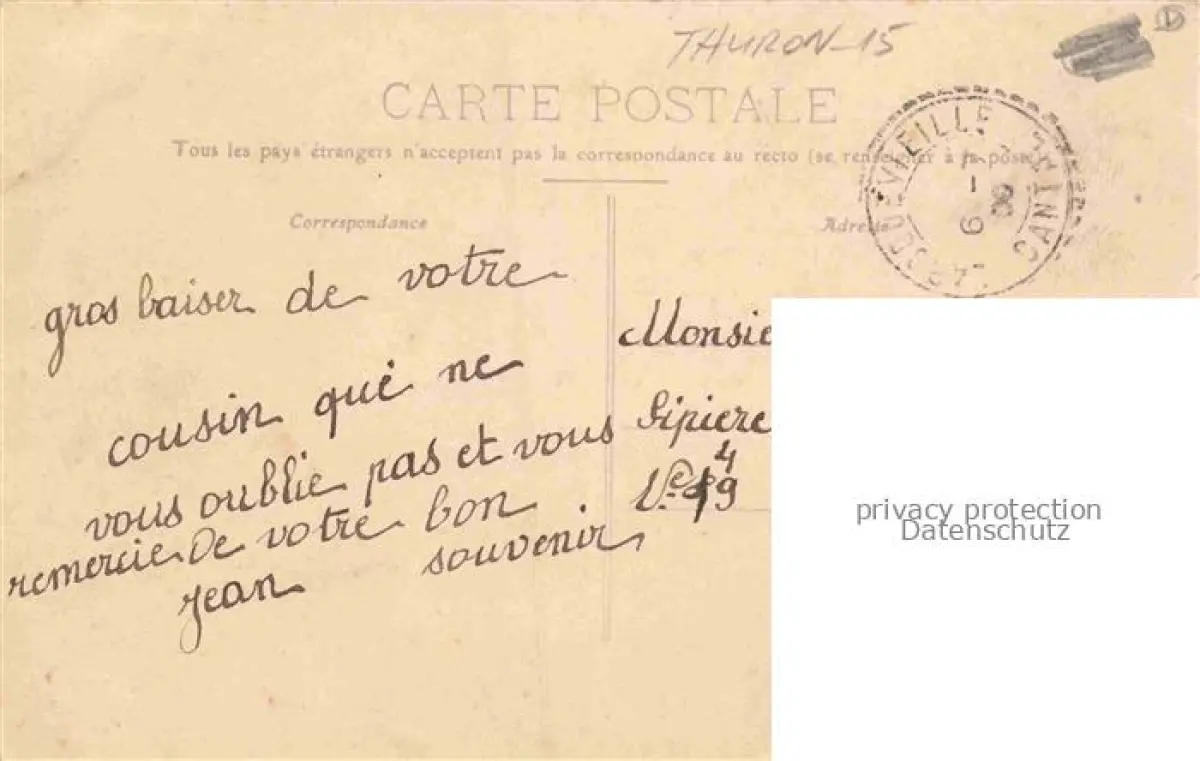 THURON-15
CARTE POSTALE
Tous les pays étrangers n'acceptent pas la correspondance au recto (se renseigner à la poste)
Correspondance
Adresse
VIEILLE
CANTAL
6 - 
gros baiser de votre
cousin que ne
vous oublie pas et vous
remercie de votre bon
souvenir,
jean
Monsie
privacy protection
Datenschutz